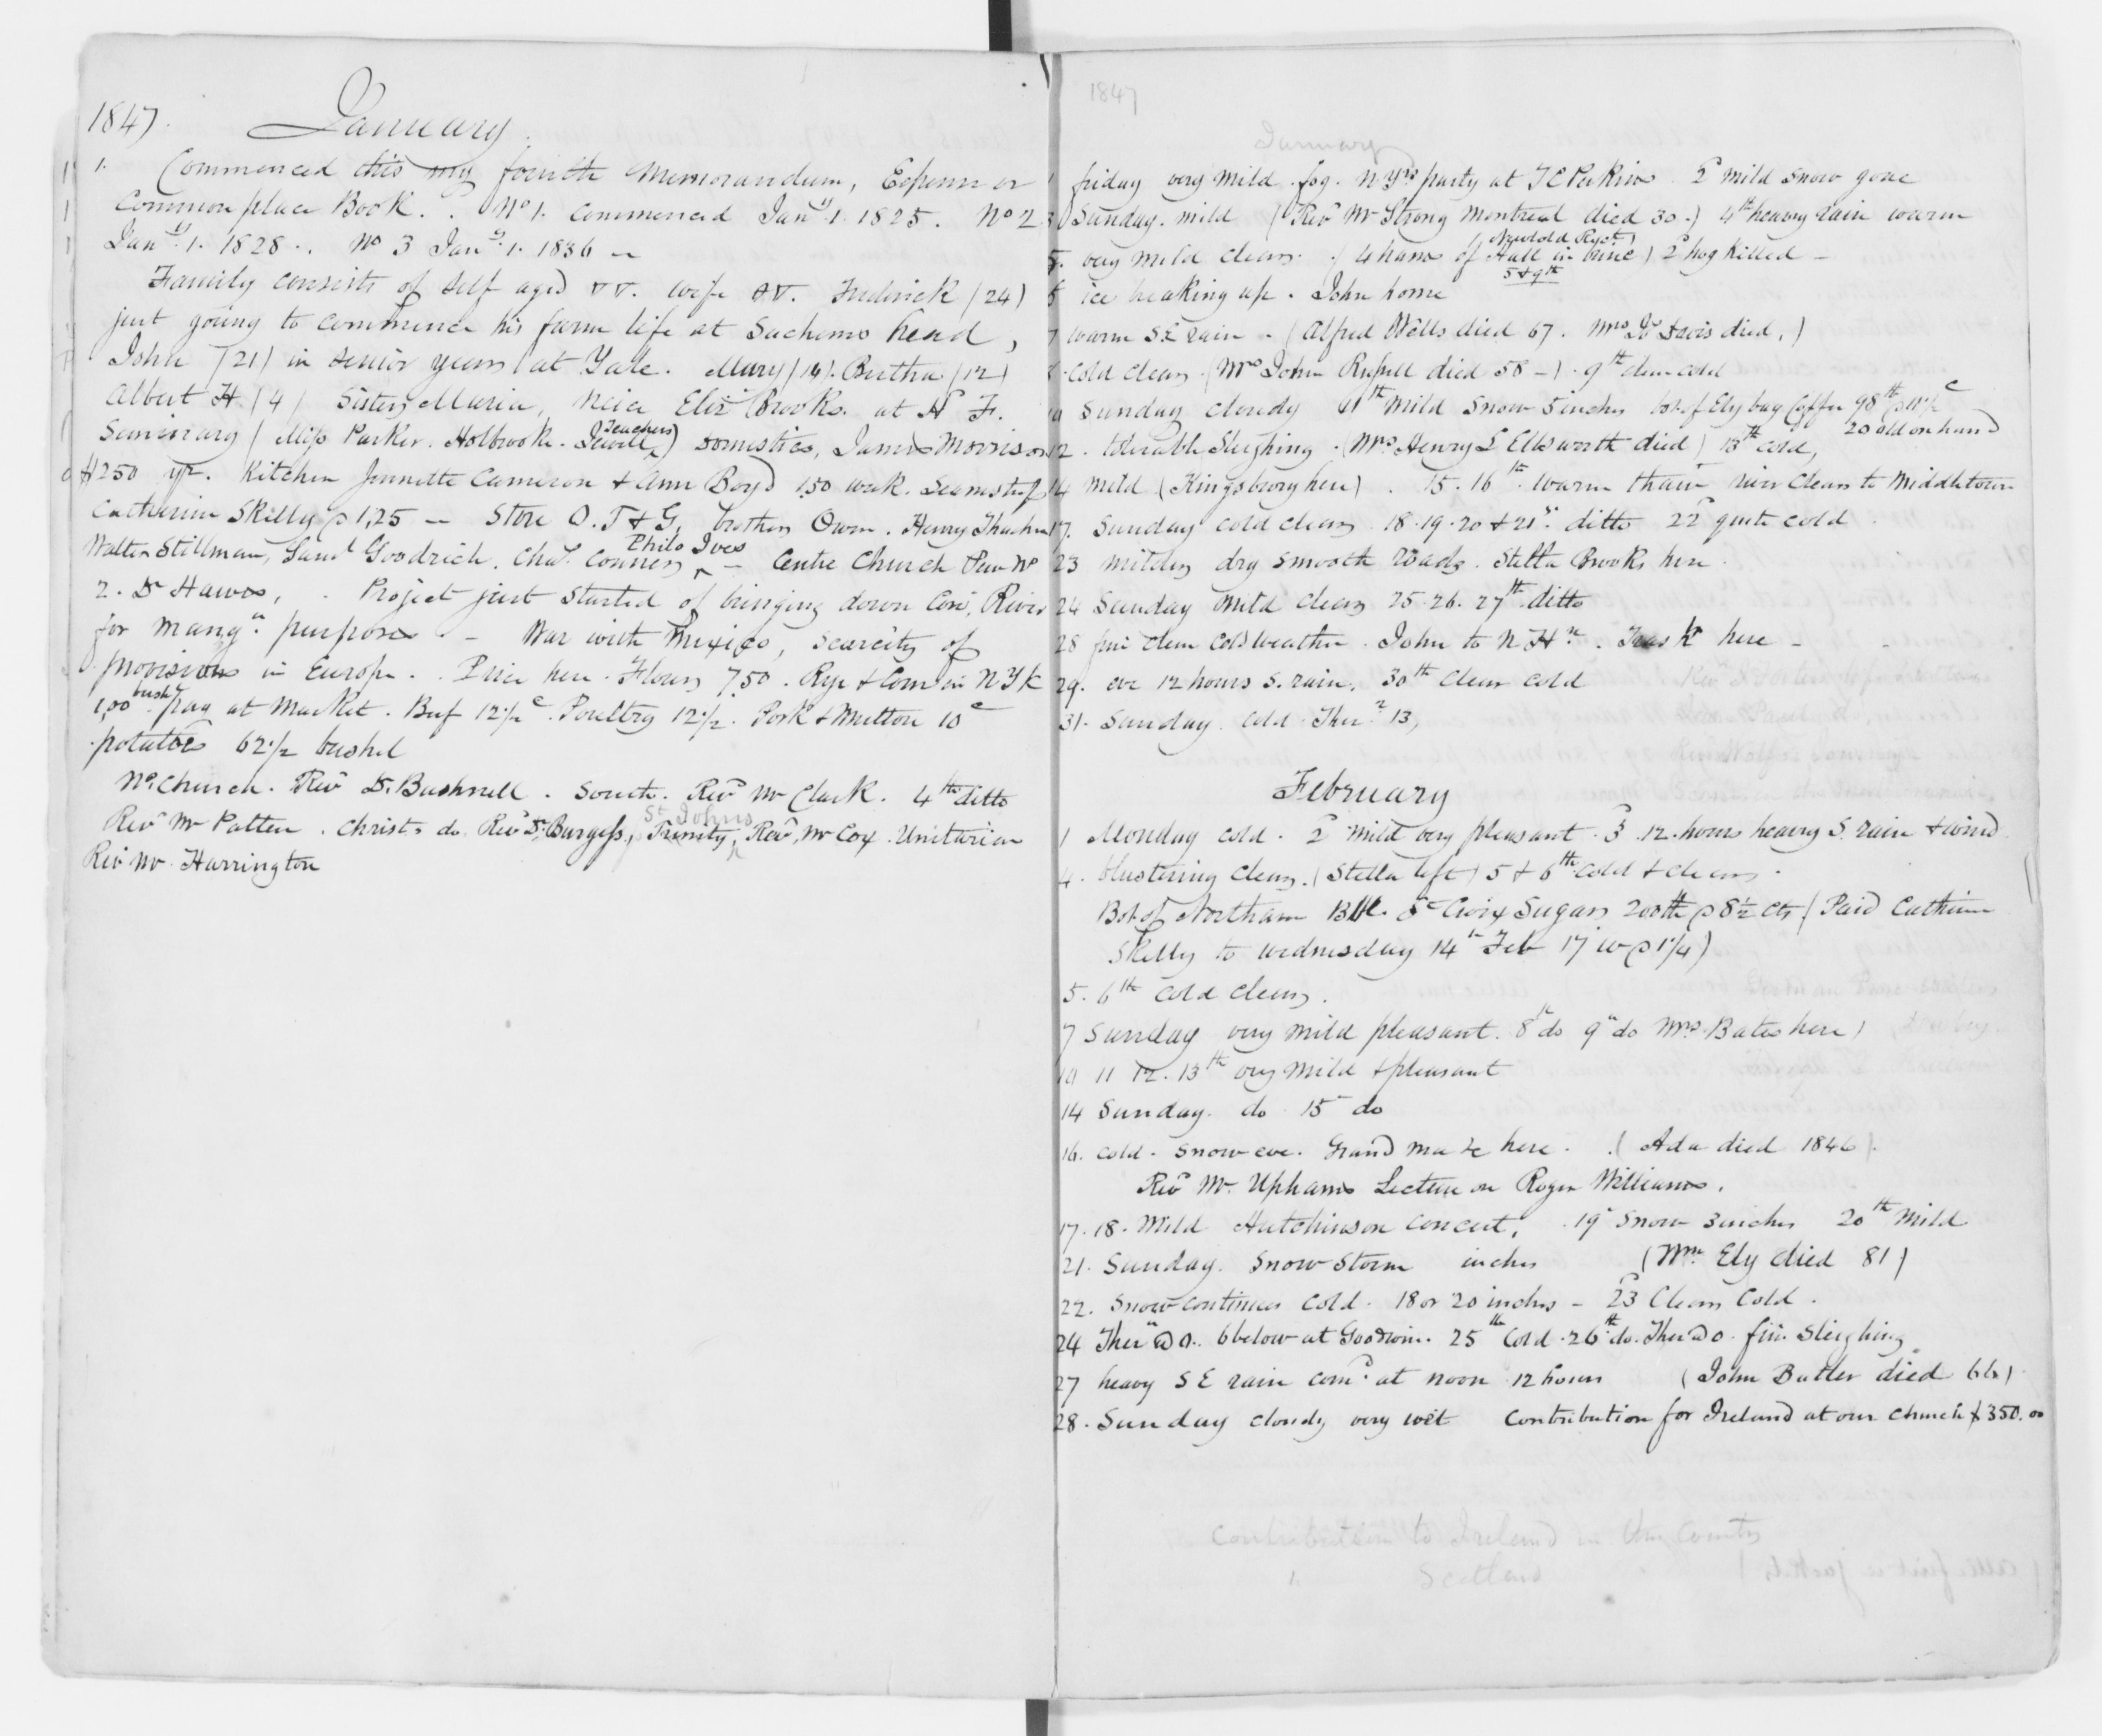 1847. January.
1. Commenced this my fourth Memorandum, Expense or
Common place Book. . No 1. Commenced Jany 1. 1825. No 2
Jany. 1. 1828 . . No 3 Jany. 1. 1836 —
Family consists of self aged wife Frederick (24)
just going to commence his farm life at Sachems head,
John (21) in senior year at Yale. Mary (14). Bertha (12)
Albert H (4) Sister Maria, Neice Eliz Brooks. at H F.
Seminary (Miss Parker. Holbrook. Jewell, Teachers) Domestics, James Morrison
$250 yr. Kitchen Jennette Cameron & Ann Boyd 1,50 week. Seamstress
Catherine Skelly @ 1,25 — Store O. T & G, brothers Owen. Henry Thacher
Walter Stillman, Saml Goodrich. Chas. Conners, Philo Ives — Centre Church Pew No
2. Dr Hawes, . Project just started of bringing down Con. River
for mang. purposes — War with Mexico, scarcity of
provisions in Europe. . Price here. Flour 7,50. Rye & Corn in N Yk
1,00 bush. pay at Market. Beef 12½ c. Poultry 12½. Pork & Mutton 10 c
potatoes 62½ bushel
No. Church. Revd Dr. Bushnell. South. Revd Mr Clark. 4th ditto
Revd Mr Patten. Christs do Revd Dr Burgess, Trinity, St Johns Revd, Mr Cox. Unitarian
Rev Mr Harrington
1847
January
1 friday very mild fog. N Yrs party at T C Perkins 2d mild snow gone
3 Sunday. mild (Revd Mr Strong Montreal died 30.) 4th heavy rain warm
5. very mild clear. (4 hams of Hall in brine) 2d hog killed —
5 & 9th
6 ice breaking up. John home
7 warm S.E rain. (Alfred Wells died 67. Mrs Davis died.)
8. Cold clear. (Mrs John Russell died 58 —). 9th clear cold
10 Sunday cloudy 11th mild snow 5 inches bot of Ely bag Coffee 98 lb
20 old on hand
12. tolerable Sleighing. (Mrs Henry L Ellsworth died) 13th cold,
14 mild (Kingsbury here). 15. 16th. warm thaw river clear to Middletown
17. Sunday cold clear 18. 19. 20 & 21st. ditto 22d quite cold
23 milder dry smooth roads. Stella Brooks here.
24 Sunday mild clear 25. 26. 27th ditto
28 fine clear cold weather. John to N Hn. Trask here —
29. eve 12 hours S. rain. 30th Clear cold
31. Sunday. cold. Ther. 13,
February
1 Monday cold. 2d mild very pleasant. 3d 12 hours heavy S. rain & wind
4. blustering clear. (Stella left) 5 & 6th cold & clear.
Bot of Northam Bbl. St Croix Sugar 200 lb @ 8½ cts (Paid Catherine
Skelly to Wednesday 14th Feb 17 w @ 1¼)
5. 6th cold clear.
7 Sunday very mild pleasant. 8th do 9th do Mrs. Bates here)
10 11 12. 13th very mild & pleasant
14 Sunday. do 15 do
16. cold. snow eve. Grand Ma &c here. . (Ada died 1846).
Revd Mr. Uphams Lecture on Roger Williams.
17. 18. Mild Hutchinson Concert. 19th snow 3 inches 20th mild
21. Sunday. Snow Storm inches (Wm. Ely died 81)
22. Snow continues cold. 18 or 20 inches — 23d Clear Cold.
24 Ther @ 0. 6 below at Goodwin. 25th Cold. 26th do. Ther @ 0. fine sleighing
27 heavy S E rain comd. at noon 12 hours (John Butler died 66)
28. Sunday cloudy very wet Contribution for Ireland at our Church $350.00
Contribution to Ireland in County
" Scotland